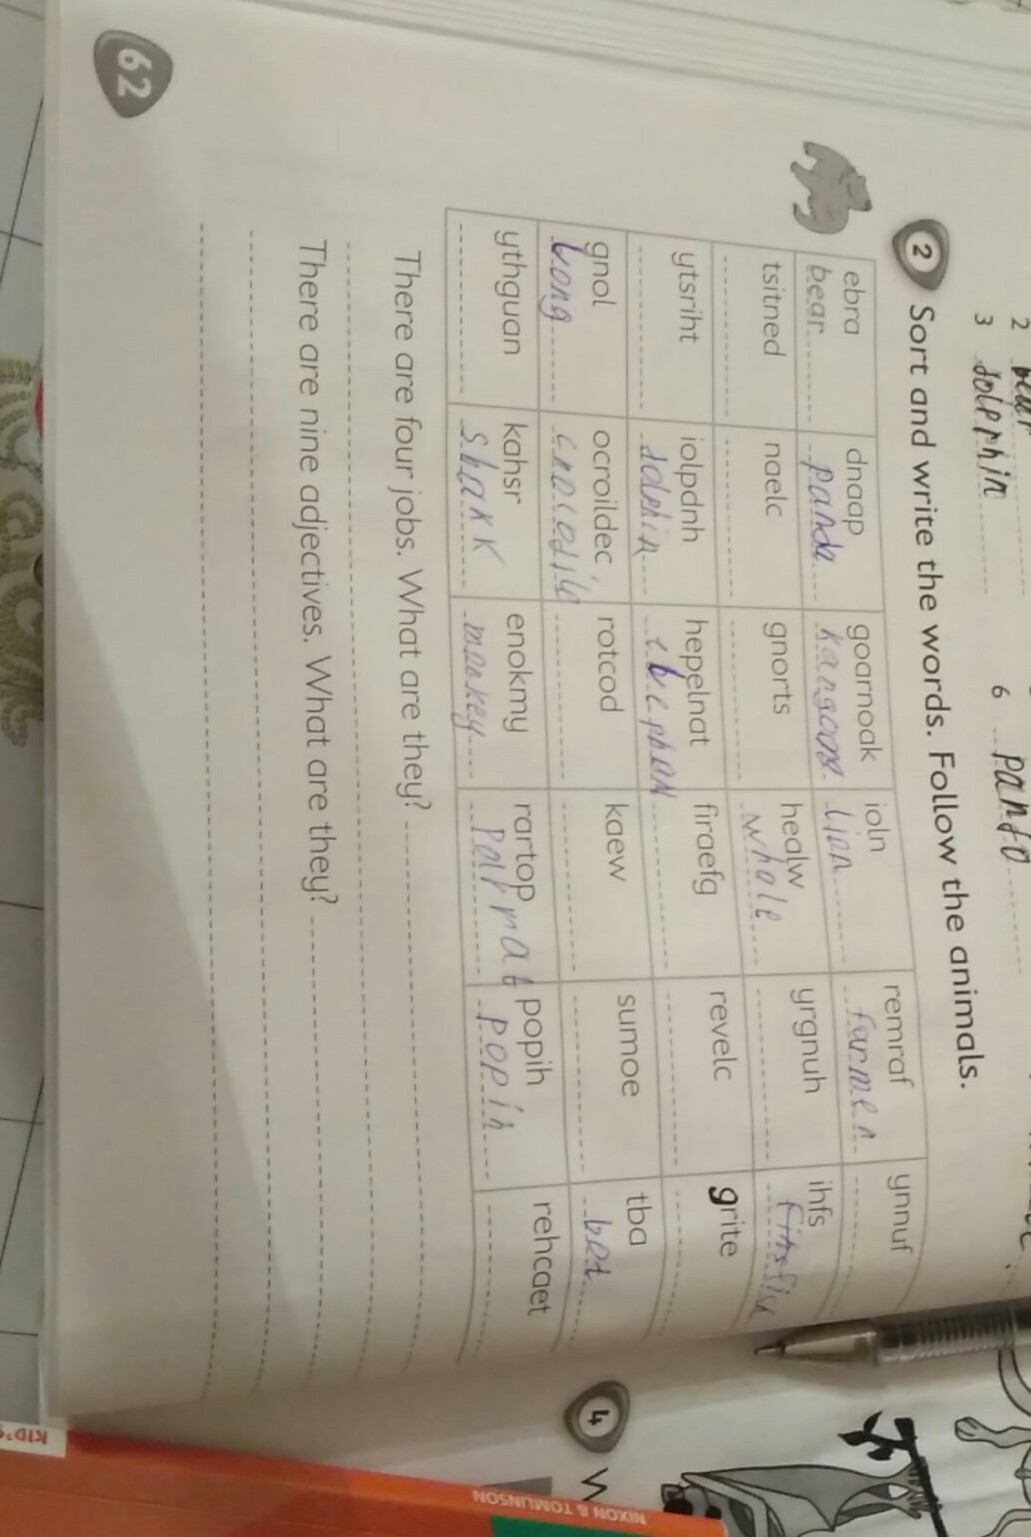 2 bear
3 dolephin
6 panda
2 Sort and write the words. Follow the animals.
ebra dnaap goarnoak ioln remraf ynnuf
bear panda kangaroo lion farmer
tsitned naelc gnorts healw yrgnuh ihfs
whale
ytsriht iolpdnh hepelnat firaefg revelc grite
dolehin
gnol ocroildec rotcod kaew sumoe tba
Long crocodile bet
ythguan kahsr enokmy rartop popih rehcaet
shark monkey Parrat popih
There are four jobs. What are they?
There are nine adjectives. What are they?
62
4
KID'S
NIXON & TOMLINSON